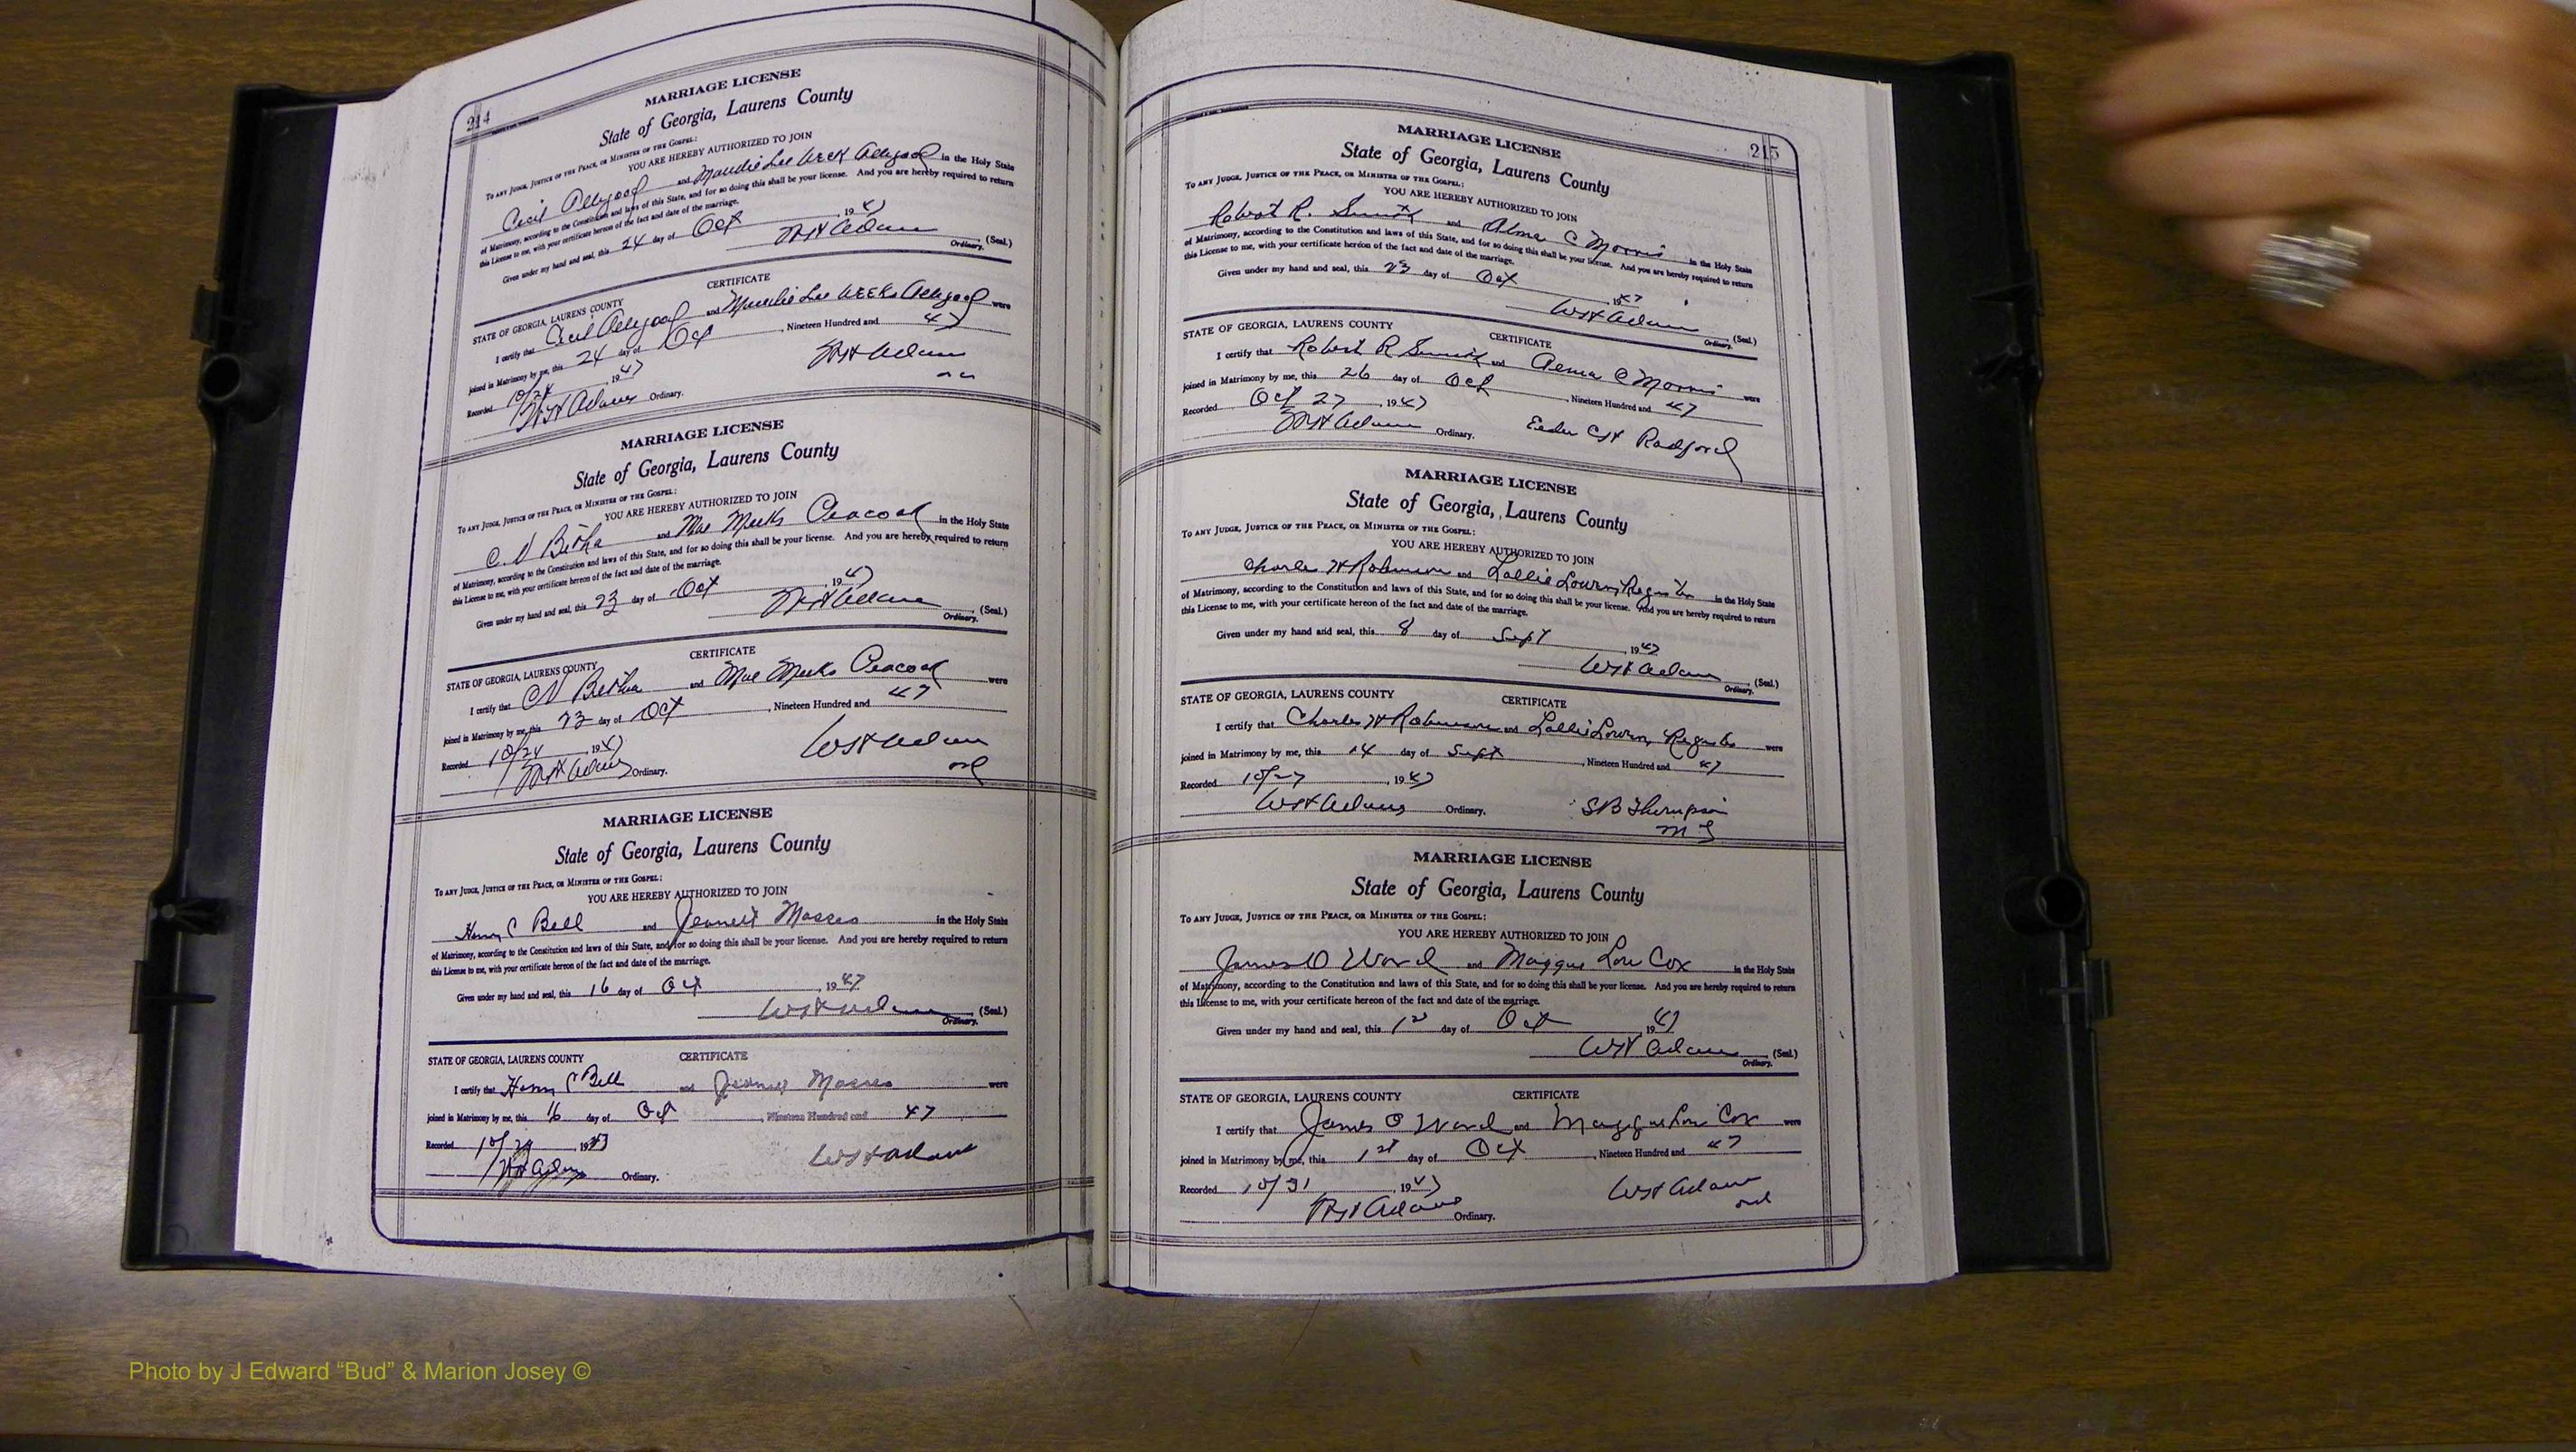 214
MARRIAGE LICENSE
State of Georgia, Laurens County
To any Judge, Justice of the Peace, or Minister of the Gospel:
YOU ARE HEREBY AUTHORIZED TO JOIN
Cecil Allgood and Maudie Lee Week Allgood in the Holy State
of Matrimony, according to the Constitution and laws of this State, and for so doing this shall be your license. And you are hereby required to return
this License to me, with your certificate hereon of the fact and date of the marriage.
Given under my hand and seal, this 24 day of Oct 1947
WH Adams (Seal.)
Ordinary.
CERTIFICATE
STATE OF GEORGIA, LAURENS COUNTY
I certify that Cecil Allgood and Maudie Lee Weeks Allgood were
joined in Matrimony by me, this 24 day of Oct, Nineteen Hundred and 47
Recorded 10/24, 1947 WH Adams
WH Adams Ordinary.
MARRIAGE LICENSE
State of Georgia, Laurens County
To any Judge, Justice of the Peace, or Minister of the Gospel:
YOU ARE HEREBY AUTHORIZED TO JOIN
and Mae Meeks Peacock in the Holy State
of Matrimony, according to the Constitution and laws of this State, and for so doing this shall be your license. And you are hereby required to return
this License to me, with your certificate hereon of the fact and date of the marriage.
Given under my hand and seal, this 23 day of Oct, 1947
WH Adams (Seal.)
Ordinary.
CERTIFICATE
STATE OF GEORGIA, LAURENS COUNTY
I certify that and Mae Meeks Peacock were
joined in Matrimony by me, this 23 day of Oct, Nineteen Hundred and 47
Recorded 10/24, 1947 WH Adams
WH Adams Ordinary. ord
MARRIAGE LICENSE
State of Georgia, Laurens County
To any Judge, Justice of the Peace, or Minister of the Gospel:
YOU ARE HEREBY AUTHORIZED TO JOIN
Henry C Bell and in the Holy State
of Matrimony, according to the Constitution and laws of this State, and for so doing this shall be your license. And you are hereby required to return
this License to me, with your certificate hereon of the fact and date of the marriage.
Given under my hand and seal, this 16 day of Oct, 1947
WH Adams (Seal.)
Ordinary.
STATE OF GEORGIA, LAURENS COUNTY CERTIFICATE
I certify that Henry C Bell and were
joined in Matrimony by me, this 16 day of Oct, Nineteen Hundred and 47
Recorded 19 WH Adams
WH Adams Ordinary.
215
MARRIAGE LICENSE
State of Georgia, Laurens County
To any Judge, Justice of the Peace, or Minister of the Gospel:
YOU ARE HEREBY AUTHORIZED TO JOIN
Robert R. Smith and Alma C Morris in the Holy State
of Matrimony, according to the Constitution and laws of this State, and for so doing this shall be your license. And you are hereby required to return
this License to me, with your certificate hereon of the fact and date of the marriage.
Given under my hand and seal, this 23 day of Oct, 1947
WH Adams (Seal.)
Ordinary.
STATE OF GEORGIA, LAURENS COUNTY CERTIFICATE
I certify that Robert R Smith and Alma C Morris were
joined in Matrimony by me, this 26 day of Oct, Nineteen Hundred and 47
Recorded Oct 27, 1947
WH Adams Ordinary. Elder CH Radford
MARRIAGE LICENSE
State of Georgia, Laurens County
To any Judge, Justice of the Peace, or Minister of the Gospel:
YOU ARE HEREBY AUTHORIZED TO JOIN
Charles H Robinson and Lallie Register in the Holy State
of Matrimony, according to the Constitution and laws of this State, and for so doing this shall be your license. And you are hereby required to return
this License to me, with your certificate hereon of the fact and date of the marriage.
Given under my hand and seal, this 8 day of Sept, 1947
WH Adams (Seal.)
Ordinary.
STATE OF GEORGIA, LAURENS COUNTY CERTIFICATE
I certify that Charles H Robinson and Lallie Register were
joined in Matrimony by me, this 14 day of Sept, Nineteen Hundred and 47
Recorded 10/27, 1947
WH Adams Ordinary. SB Thompson
MG
MARRIAGE LICENSE
State of Georgia, Laurens County
To any Judge, Justice of the Peace, or Minister of the Gospel:
YOU ARE HEREBY AUTHORIZED TO JOIN
James O Ward and Lou Cox in the Holy State
of Matrimony, according to the Constitution and laws of this State, and for so doing this shall be your license. And you are hereby required to return
this License to me, with your certificate hereon of the fact and date of the marriage.
Given under my hand and seal, this 1st day of Oct, 1947
WH Adams (Seal.)
Ordinary.
STATE OF GEORGIA, LAURENS COUNTY CERTIFICATE
I certify that James O Ward and Lou Cox were
joined in Matrimony by me, this 1st day of Oct, Nineteen Hundred and 47
Recorded 10/31, 1947 WH Adams
WH Adams Ordinary. ord
Photo by J Edward “Bud” & Marion Josey ©